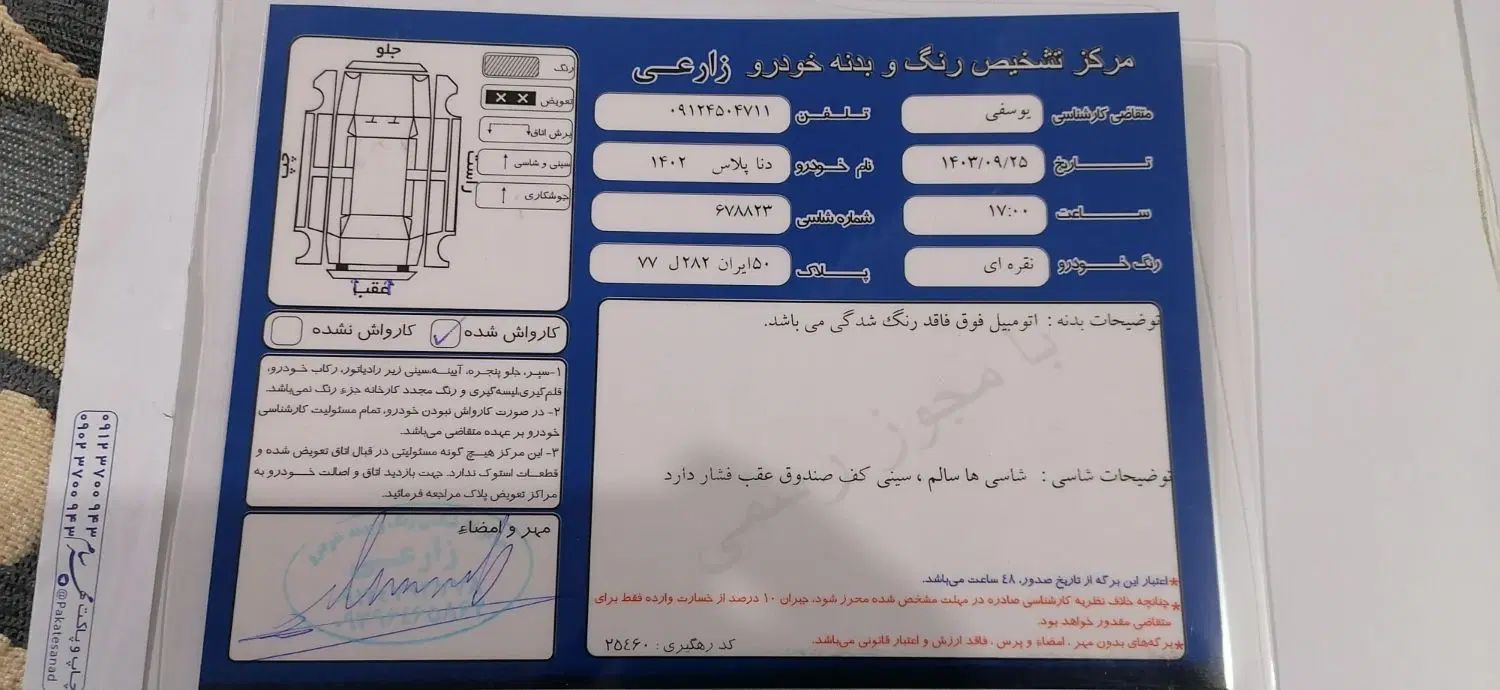 مرکز تشخیص رنگ و بدنه خودرو زارعی
متقاضی کارشناسی یوسفی
تلفن ۰۹۱۲۴۵۰۴۷۱۱
تاریخ ۱۴۰۳/۰۹/۲۵
نام خودرو دنا پلاس ۱۴۰۲
ساعت ۱۷:۰۰
شماره شاسی ۶۷۸۸۲۳
رنگ خودرو نقره ای
پلاک ۵۰ایران ۲۸۲ل ۷۷
توضیحات بدنه : اتومبیل فوق فاقد رنگ شدگی می باشد.
با مجوز رسمی
توضیحات شاسی : شاسی ها سالم ، سینی کف صندوق عقب فشار دارد
*اعتبار این برگه از تاریخ صدور، ٤٨ ساعت می‌باشد.
*چنانچه خلاف نظریه کارشناسی صادره در مهلت مشخص شده محرز شود، جبران ۱۰ درصد از خسارت وارده فقط برای
متقاضی مقدور خواهد بود.
*برگه‌های بدون مهر ، امضاء و پرس ، فاقد ارزش و اعتبار قانونی می‌باشد.
کد رهگیری : ۲۵٤۶۰
جلو
چپ
راست
عقب
رنگ
تعویض
برش اتاق
سینی و شاسی
جوشکاری
کارواش شده
کارواش نشده
۱-سپر، جلو پنجره، آیینه،سینی زیر رادیاتور، رکاب خودرو،
قلم‌گیری،لیسه‌گیری و رنگ مجدد کارخانه جزء رنگ نمی‌باشد.
۲- در صورت کارواش نبودن خودرو، تمام مسئولیت کارشناسی
خودرو بر عهده متقاضی می‌باشد.
۳- این مرکز هیچ گونه مسئولیتی در قبال اتاق تعویض شده و
قطعات استوک ندارد. جهت بازدید اتاق و اصالت خودرو به
مراکز تعویض پلاک مراجعه فرمائید.
مهر و امضاء
زارعی
چاپ و پاکت
۰۹۱۲ ۳۷۰۰ ۹۴۳
۰۹۰۲ ۳۷۰۰ ۹۴۳
@Pakatesanad